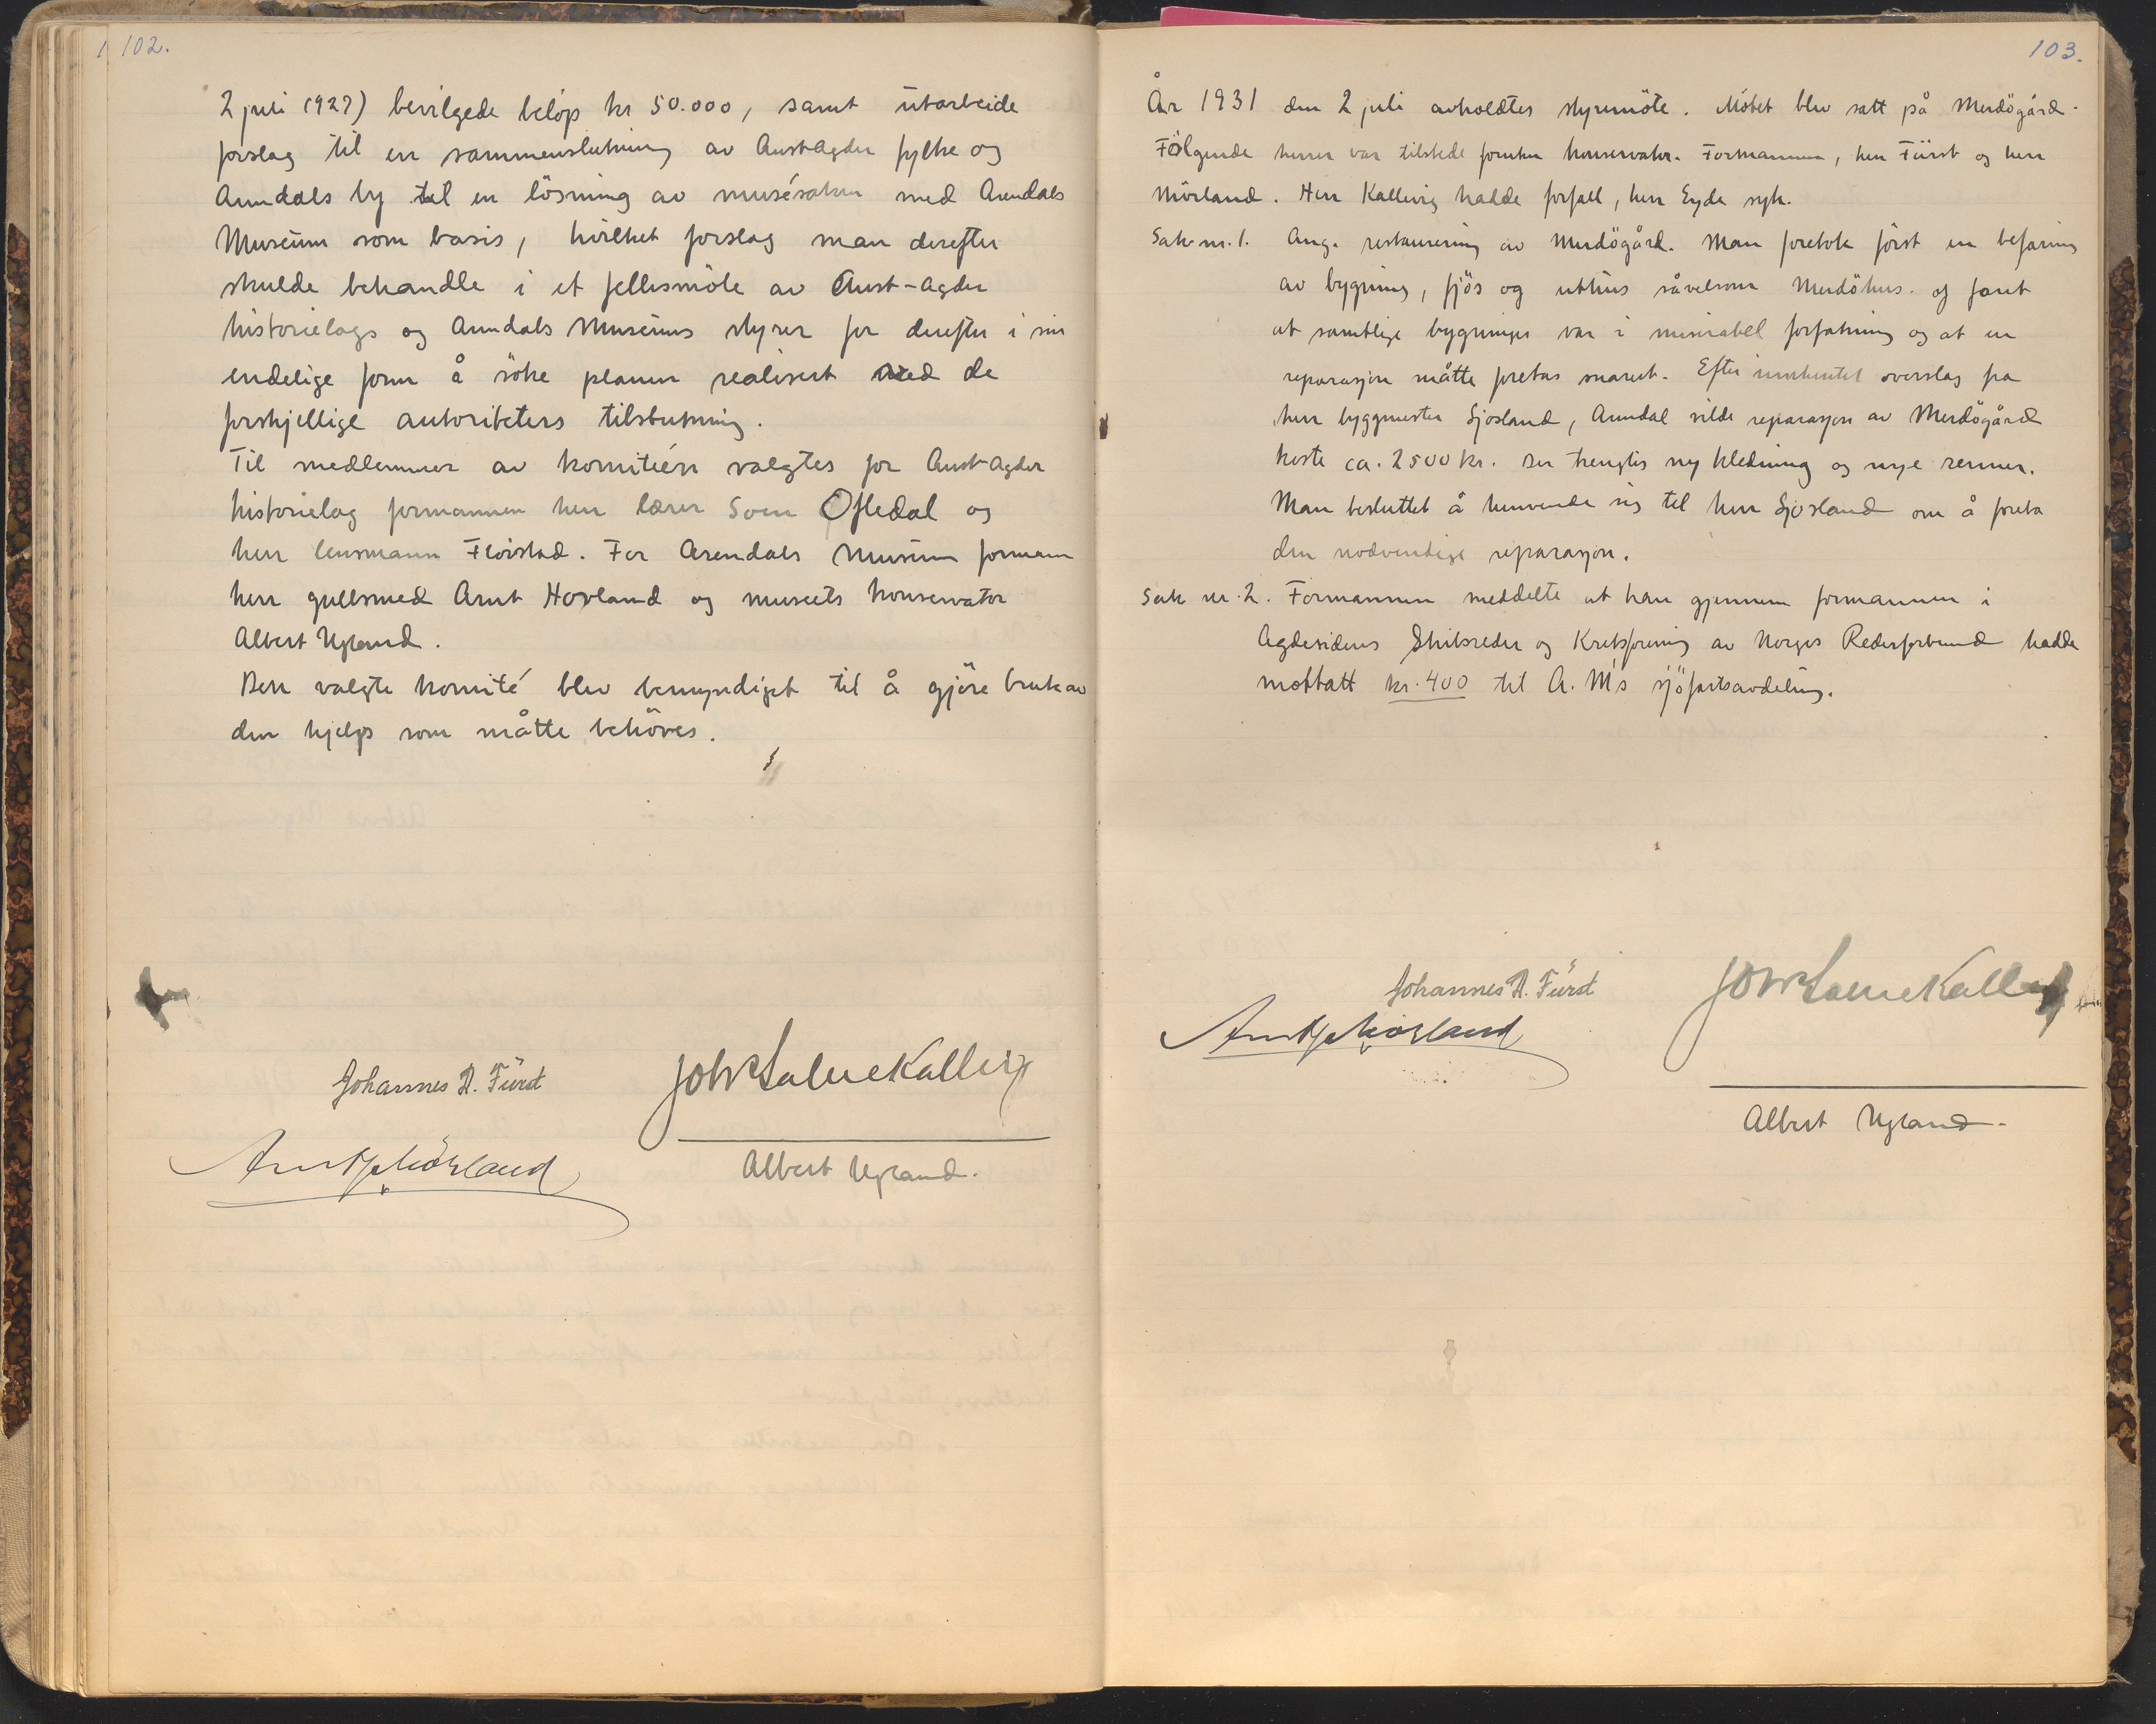 102.
2 juli 1927) bevilgede beløp kr 50.000, samt utarbeide
forslag til en sammenslutning av Aust-Agder fylke og
Arendals by til en løsning av musésaken med Arendals
Museum som basis, hvilket forslag man derefter
skulde behandle i et fellesmøte av Aust-Agder
historielags og Arendals Museums styrer for derefter i sin
endelige form å söke planen realisert med de
forskjellige autoriteters tilslutning.
Til medlemmer av komitéen valgtes for Aust-Agder
historielag formannen herr lærer Soen Ofledal og
herr lensmann Fløistad. For Arendals Museum formann
herr gullsmed Arnt Hovland og museets konservator
Albert Ugland.
Den valgte komité blev bemyndiget til å gjöre bruk av
den hjelp som måtte behöves.
Johannes A. Fürst
Joh Salve Kallevig
Arnt J. Mörland
Albert Ugland.
103.
År 1931 den 2 juli avholdtes styremöte. Mötet blev satt på Merdögård.
Fölgende herrer var tilstede foruten konservator. Formannen, herr Fürst og herr
Mörland. Herr Kallevig hadde forfall, herr Eyde syk.
Sak nr. 1. Ang. restaurering av Merdögård. Man foretok först en befaring
av bygning, fjös og uthus såvelsom Merdöhus. og fant
at samtlige bygninger var i miserabel forfatning og at en
reparasjon måtte foretas snarest. Efter innhentet overslag fra
herr byggmester Sjösland, Arendal vilde reparasjon av Merdögård
koste ca. 2500 kr. Der trengtes ny kledning og nye renner.
Man besluttet å henvende sig til herr Sjösland om å foreta
den nødvendige reparasjon.
Sak nr. 2. Formannen meddelte at han gjennem formannen i
Agdesidens Skibsreder og Kretsforening av Norges Rederforbund hadde
mottatt kr. 400 til A. M's sjöfartsavdeling.
Johannes A. Fürst
Joh Salve Kallevig
Arnt J. Mörland
Albert Ugland.